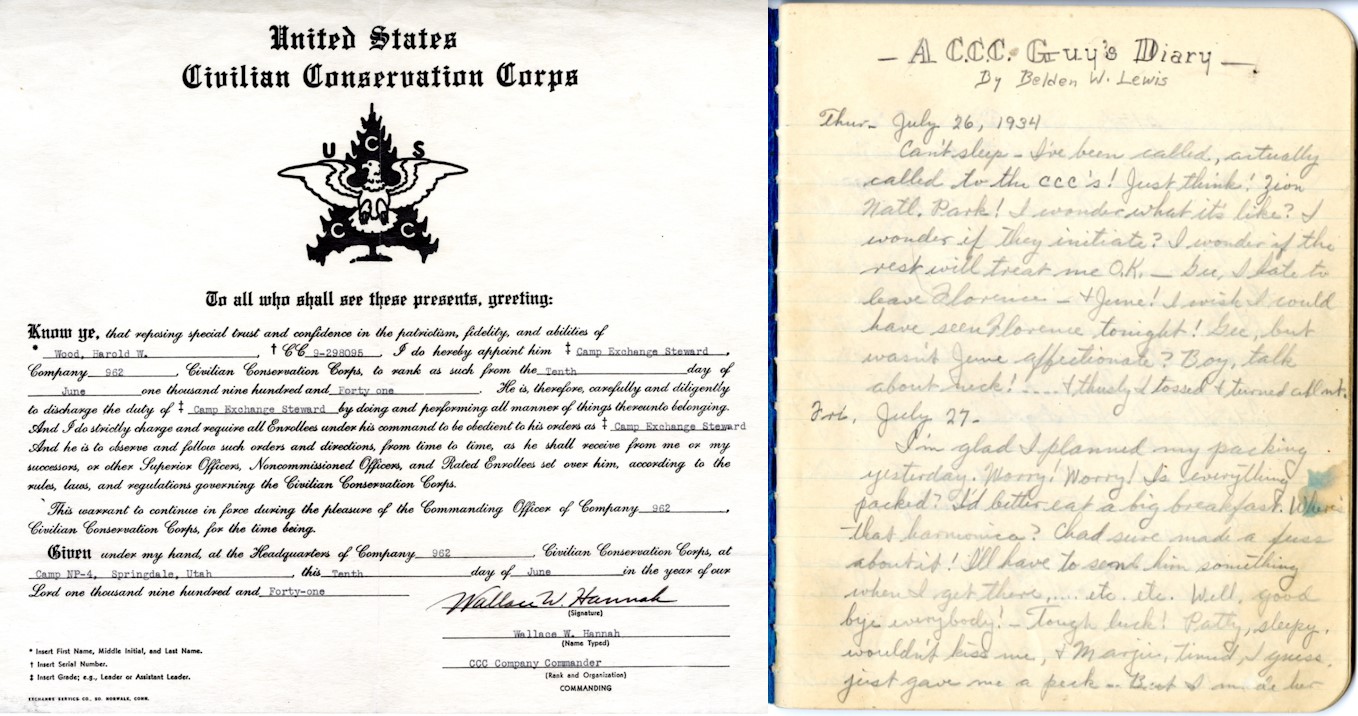 United States
Civilian Conservation Corps
U C S
C C
To all who shall see these presents, greeting:
Know ye, that reposing special trust and confidence in the patriotism, fidelity, and abilities of
* Wood, Harold W. , † CC 9-298095 , I do hereby appoint him ‡ Camp Exchange Steward ,
Company 962 , Civilian Conservation Corps, to rank as such from the Tenth day of
June one thousand nine hundred and Forty one . He is, therefore, carefully and diligently
to discharge the duty of ‡ Camp Exchange Steward by doing and performing all manner of things thereunto belonging.
And I do strictly charge and require all Enrollees under his command to be obedient to his orders as ‡ Camp Exchange Steward
And he is to observe and follow such orders and directions, from time to time, as he shall receive from me or my
successors, or other Superior Officers, Noncommissioned Officers, and Rated Enrollees set over him, according to the
rules, laws, and regulations governing the Civilian Conservation Corps.
This warrant to continue in force during the pleasure of the Commanding Officer of Company 962 ,
Civilian Conservation Corps, for the time being.
Given under my hand, at the Headquarters of Company 962 , Civilian Conservation Corps, at
Camp NP-4, Springdale, Utah , this Tenth day of June in the year of our
Lord one thousand nine hundred and Forty-one
Wallace W. Hannah
(Signature)
Wallace W. Hannah
(Name Typed)
CCC Company Commander
(Rank and Organization)
COMMANDING
* Insert First Name, Middle Initial, and Last Name.
† Insert Serial Number.
‡ Insert Grade; e.g., Leader or Assistant Leader.
EXCHANGE SERVICE CO., SO. NORWALK, CONN.
- A C.C.C. Guy's Diary -
By Belden W. Lewis
Thur- July 26, 1934
Can't sleep - I've been called, actually
called to the CCC's! Just think! Zion
Natl. Park! I wonder what it's like? I
wonder if they initiate? I wonder if the
rest will treat me O.K. - Gee, I hate to
leave Florence - + June! I wish I could
have seen Florence tonight! Gee, but
wasn't June affectionate? Boy, talk
about neck! ..... + thusly I tossed + turned all nt.
Fri, July 27-
I'm glad I planned my packing
yesterday. Worry! Worry! Is everything
packed? I'd better eat a big breakfast. Where's
that harmonica? Chad sure made a fuss
about it! I'll have to send him something
when I get there,... etc. etc. Well, good
bye everybody! - Tough luck! Patty, sleepy,
wouldn't kiss me, + Margie, timid, I guess,
just gave me a peck - But I made her